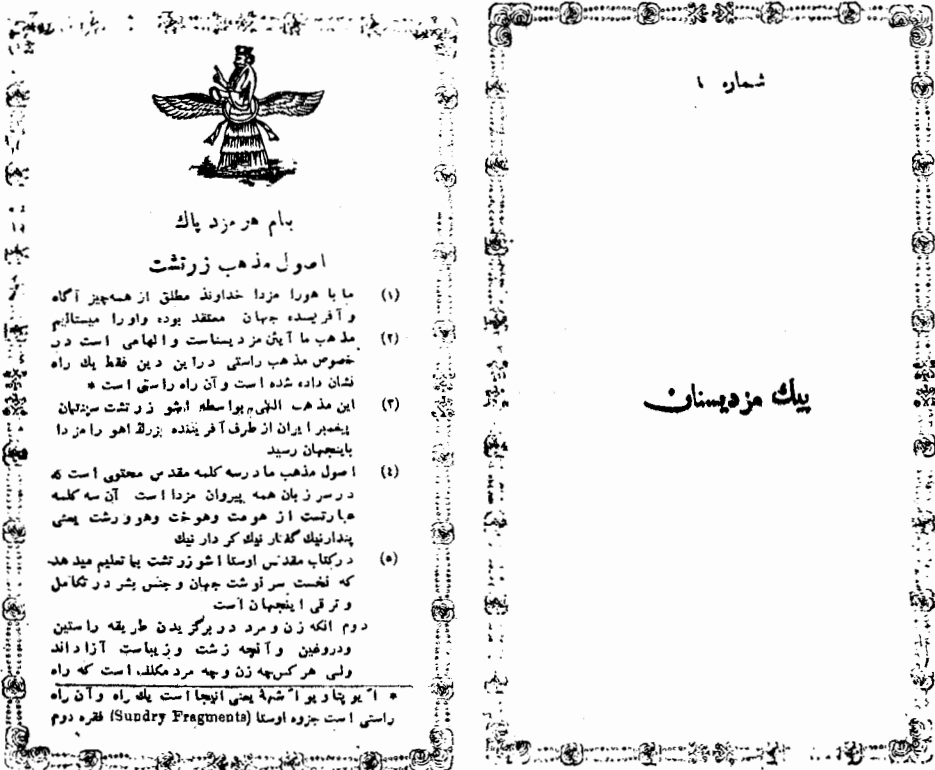 شماره ۱
پیك مزدیسنان
بنام هرمزد پاك
اصول مذهب زرتشت
(۱) ما با هورا مزدا خداوند مطلق از همه‌چیز آگاه
و آفریسده جهان معتقد بوده و اورا میستائیم
(۲) مذهب ما آیئن مزدیسناست و الهامی است در
خصوص مذهب راستی دراین دین فقط یك راه
نشان داده شده است و آن راه راستی است *
(۳) این مذهب الهی بواسطه اشو زرتشت سپنتمان
پیغمبر ایران از طرف آفریننده بزرگ اهو را مزدا
باینجهان رسید
(٤) اصول مذهب ما در سه کلمه مقدس محتوی است که
در سر زبان همه پیروان مزدا است آن سه کلمه
عبارتست از هومت وهوخت وهوورشت یعنی
پندار نیك گفتار نیك کردار نیك
(٥) در کتاب مقدس اوستا اشو زرتشت بما تعلیم میدهد
که نخست سرنوشت جهان و جنس بشر در تکامل
و ترقی اینجهان است
دوم انکه زن و مرد در برگزیدن طریقه راستین
ودروغین و آنچه زشت و زیباست آزاد اند
ولی هر کس چه زن و چه مرد مکلف است که راه
* یعنی اینجا است یك راه و آن راه
راستی است جزوه اوستا (Sundry Fragments) فقره دوم